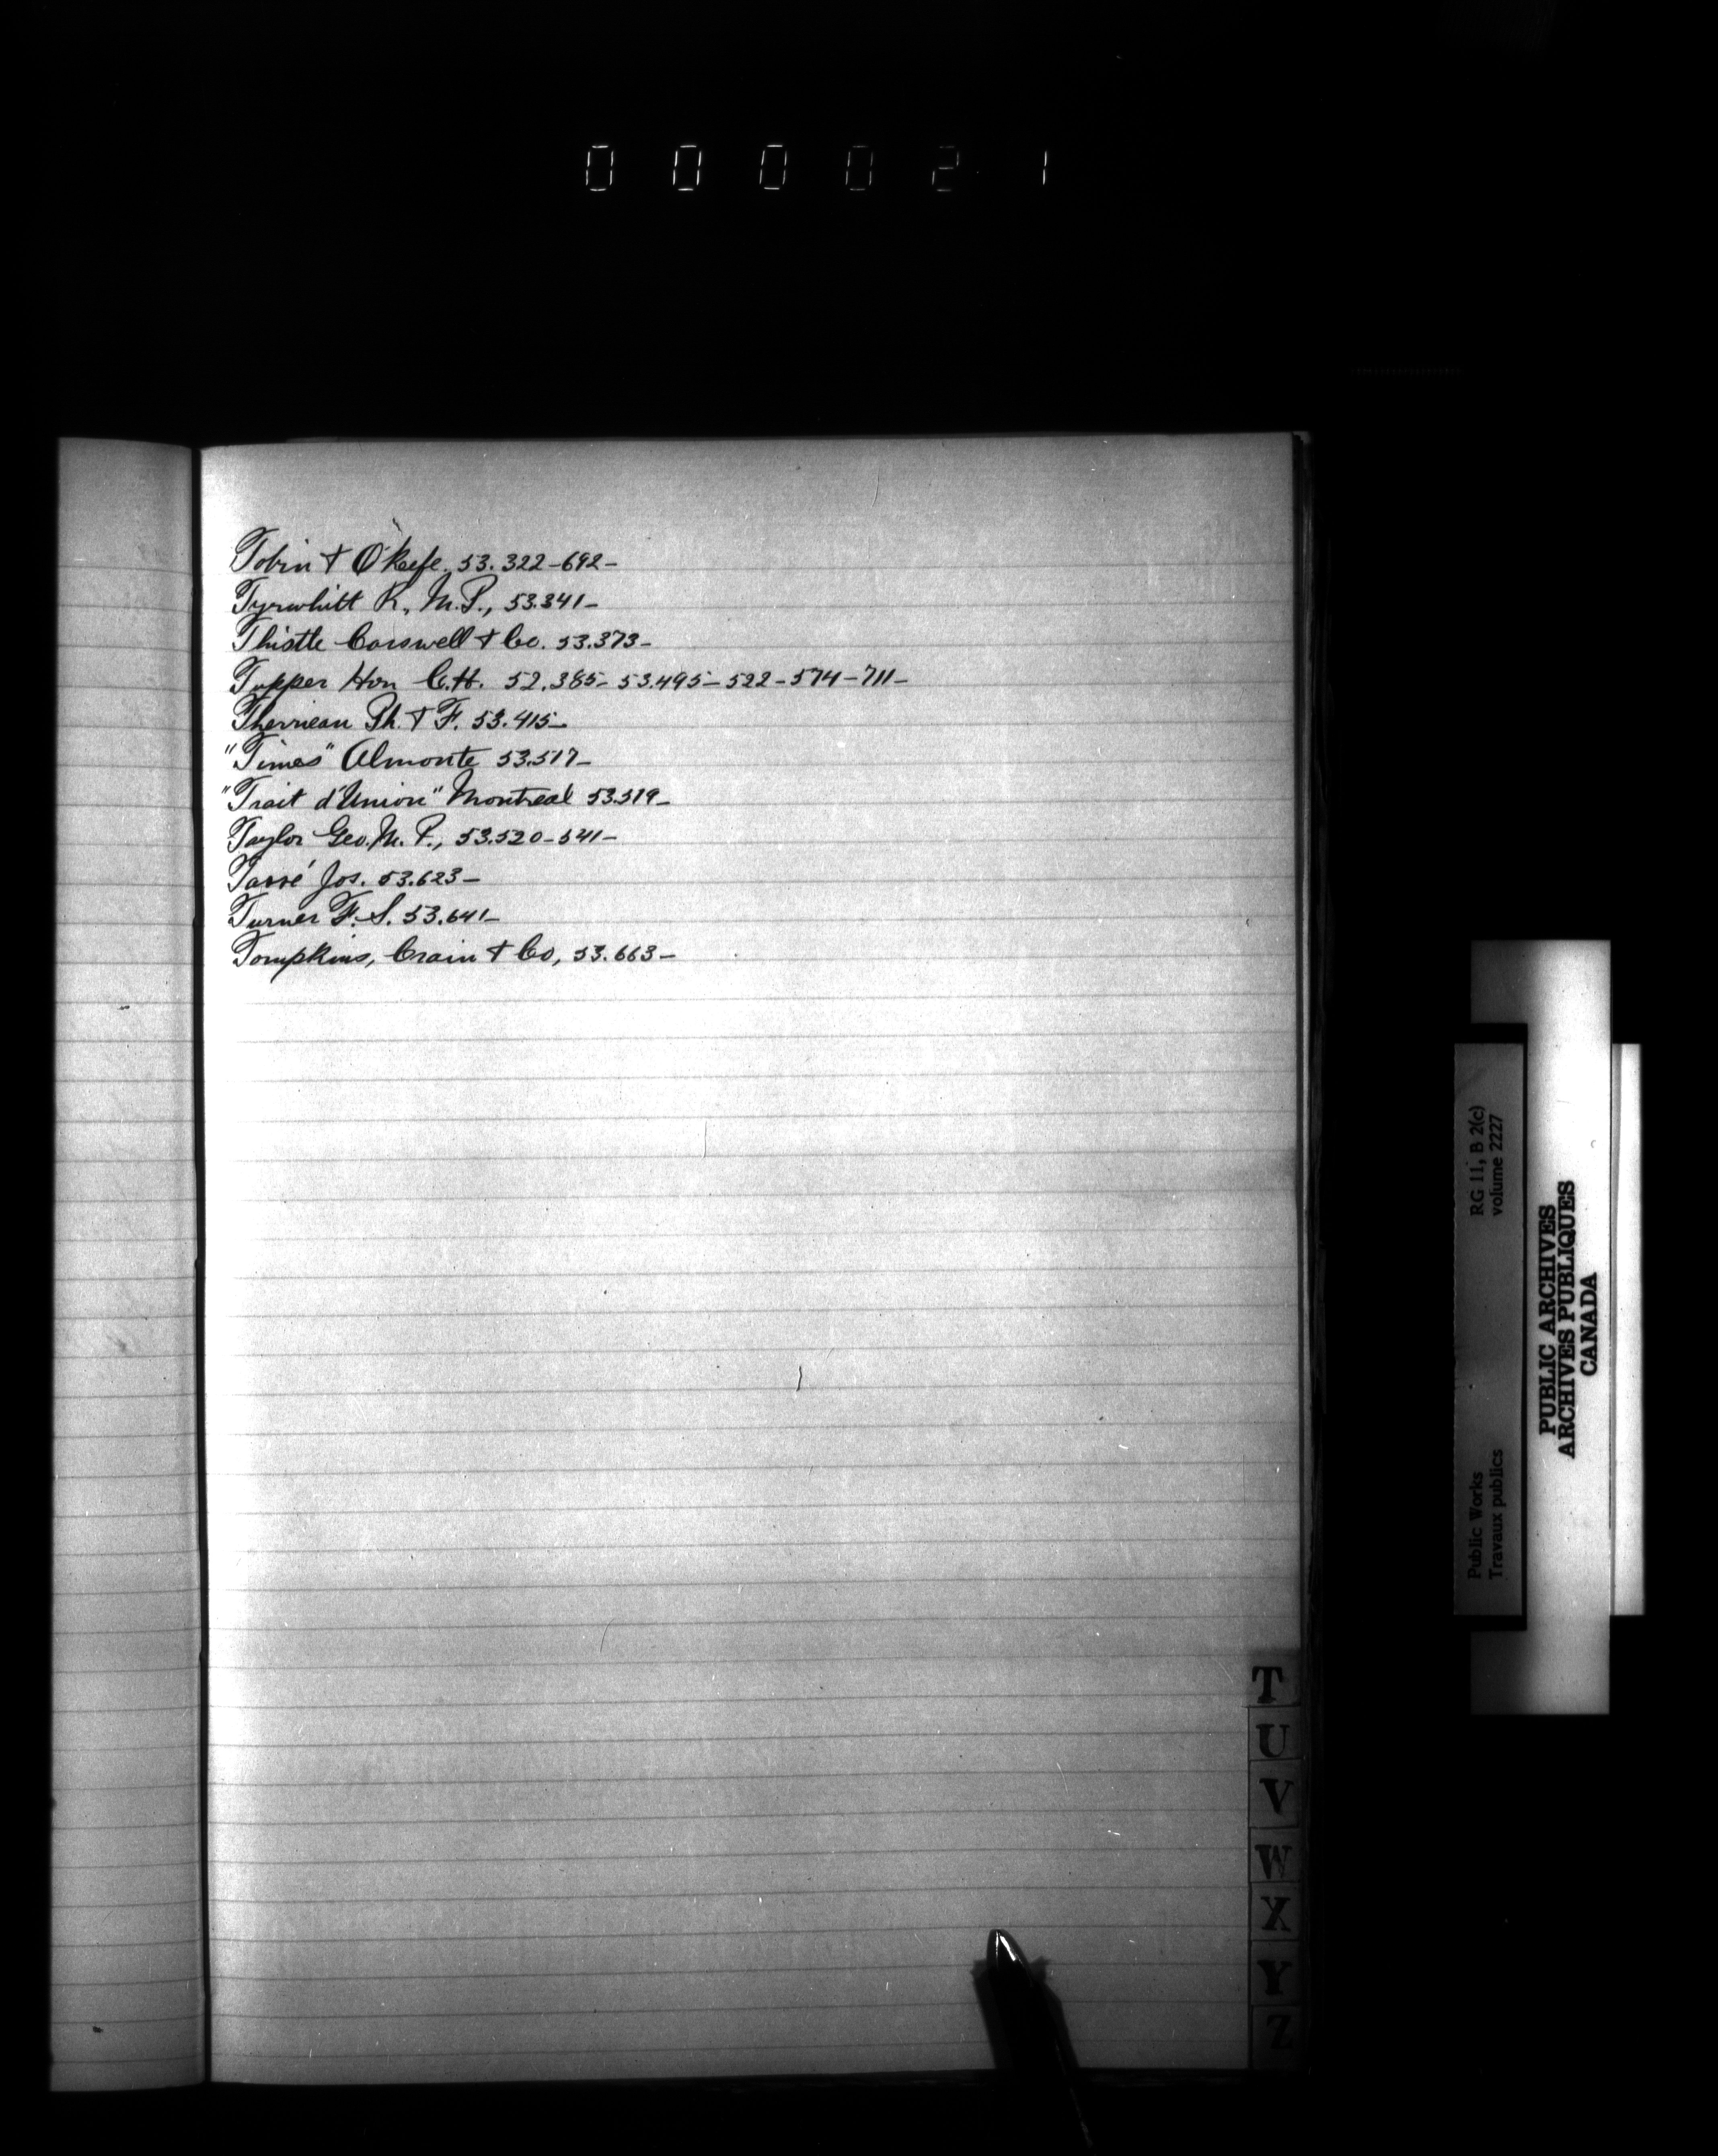 000021
Tobin & O'Keefe. 53.322-692-
Tyrwhitt R., M.P., 53.341-
Thistle Carswell & Co. 53.373-
Tupper Hon C.H. 52.385- 53.495-522-574-711-
Therrieau Ph. & F. 53.415-
"Times" Almonte 53.517-
"Trait d'Union" Montreal 53.519-
Taylor Geo. M.P., 53.520-541-
Tassé Jos. 53.623-
Turner F.S. 53.641-
Tompkins, Crain & Co, 53.663-
T
U
V
W
X
Y
Z
Public Works RG 11, B 2(c)
Travaux publics volume 2227
PUBLIC ARCHIVES
ARCHIVES PUBLIQUES
CANADA